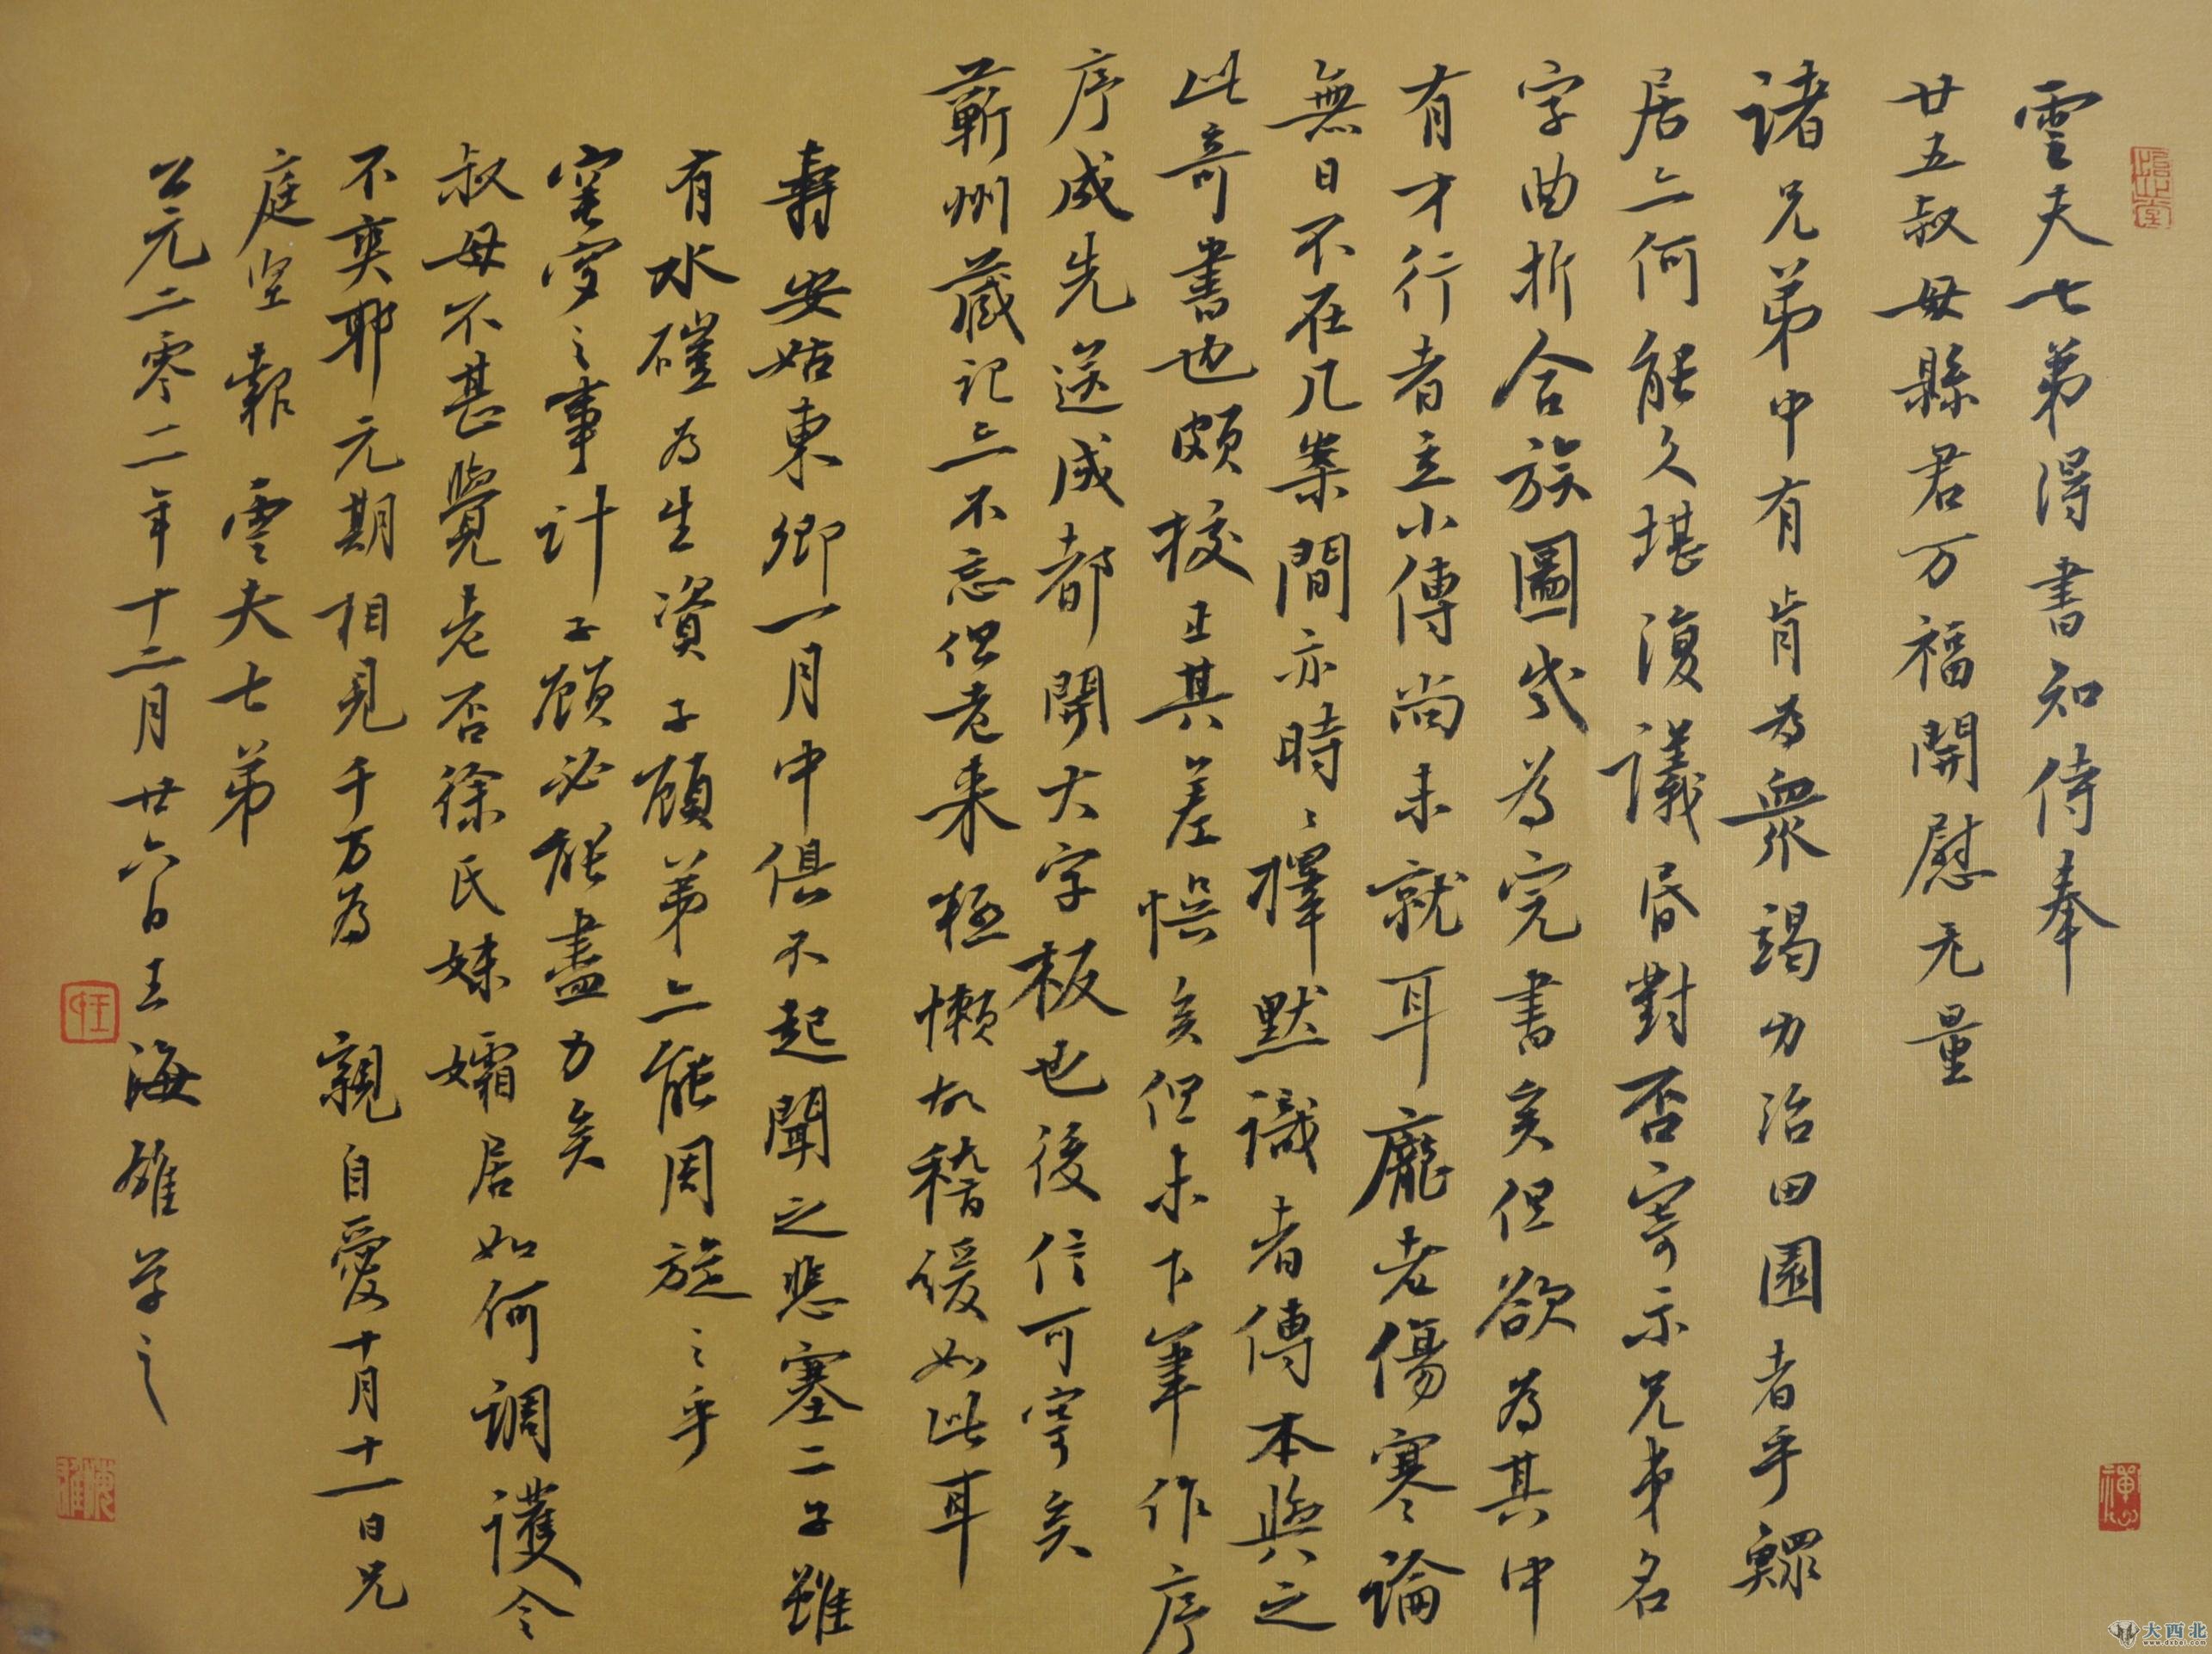 雲夫七弟得書知侍奉
廿五叔母縣君万福開慰无量
诸兄弟中有肯為衆竭力治田園者乎鰥
居亠何能久堪復議昏對否寄示兄弟名
字曲折合族圖
為完書矣但欲為其中
有才行者立小傳尚未就耳龐老傷寒論
無日不在几案間亦時〻擇默識者傳本與之
此奇書也頗校正其差悮矣但未下筆作序
序成先送成都開大字板也後信可寄矣
蘄州藏記亠不忘但老来極懒故稽缓如此耳
壽安姑東卿一月中俱不起聞之悲塞二子雖
有水磑為生資子顧弟亠能周旋之乎
窀穸之事計子顧必能盡力矣
叔母不甚覺老否徐氏妹孀居如何调護令
不爽耶元期相見千万為親自愛十月十一日兄
庭坚報雲夫七弟
公元二零一二年十二月廿六日王海雄学之
大西北
www.dxbei.com